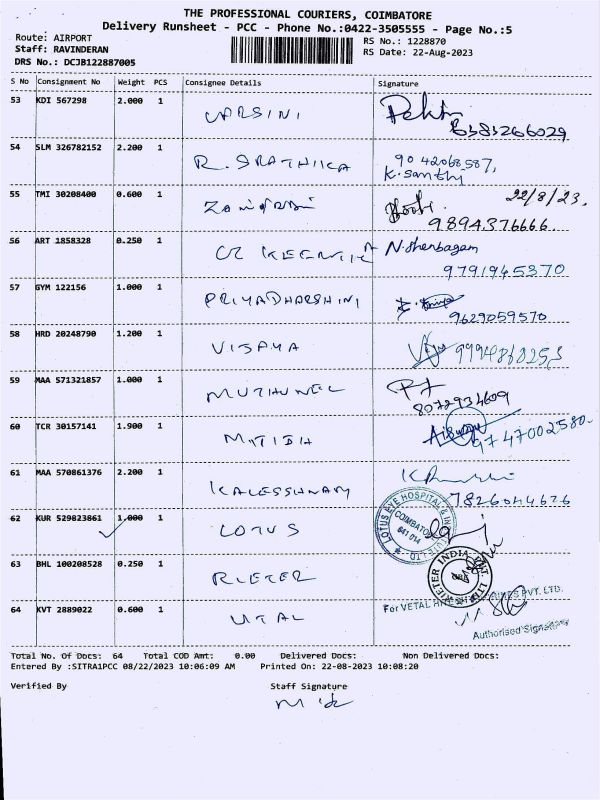 THE PROFESSIONAL COURIERS, COIMBATORE
Delivery Runsheet - PCC - Phone No.:0422-3505555 - Page No.:5
Route: AIRPORT
RS No.: 1228870
Staff: RAVINDERAN
RS Date: 22-Aug-2023
DRS No.: DCJB122887005
S No Consignment No Weight PCS Consignee Details Signature
53 KDI 567298 2.000 1 VARSINI
8383266029
54 SLM 326782152 2.200 1 R. SRATHIKA 9042068587,
K. Santhy
55 TMI 30208400 0.600 1 22/8/23.
9894376666.
56 ART 1858328 0.250 1 N. Shenbagam
9791945370
57 GYM 122156 1.000 1 PRIYADHARSHINI
9629059570
58 HRD 20248790 1.200 1 VIJAYA 9994868253
59 MAA 571321857 1.000 1 MUTHUVEL
8072934609
60 TCR 30157141 1.900 1 9747002580.
61 MAA 570861376 2.200 1
7826044626
62 KUR 529823861 1.000 1 LOTUS LOTUS EYE HOSPITAL & COIMBATORE 641 014
63 BHL 100208528 0.250 1 RIETER RIETER INDIA PVT LTD
64 KVT 2889022 0.600 1 VITAL For VETAL PVT. LTD.
Authorised Signatory
Total No. Of Docs: 64 Total COD Amt: 0.00 Delivered Docs: Non Delivered Docs:
Entered By :SITRA1PCC 08/22/2023 10:06:09 AM Printed On: 22-08-2023 10:08:20
Verified By Staff Signature